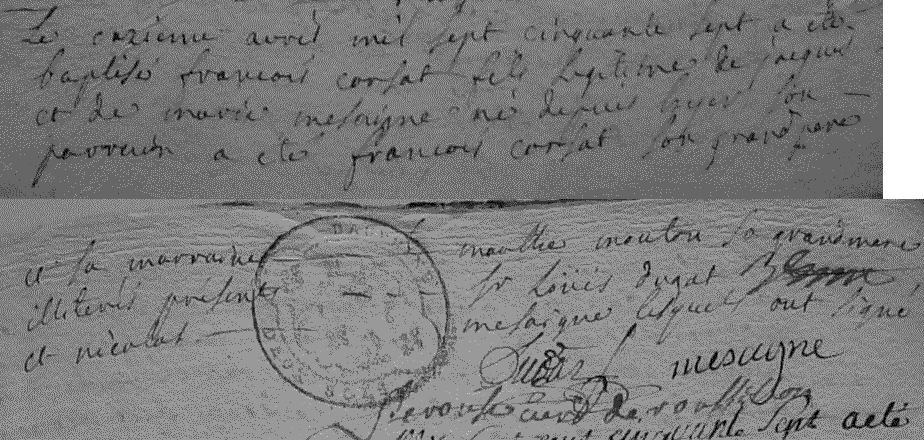 Le onzieme avril mil sept cinquante sept a eté
baptisé francois corsat fils legitime de jacques
et de marie mesaigne né depuis hyer son
parrein a eté francois corsat son grandpere
et sa marraine marthe mouton sa grandmere
illiterés presents sr loüis dugat
et nicolas mesaigne lesquels ont signé
Dugat mesaigne
curé de roussillon
cinquante sept a eté